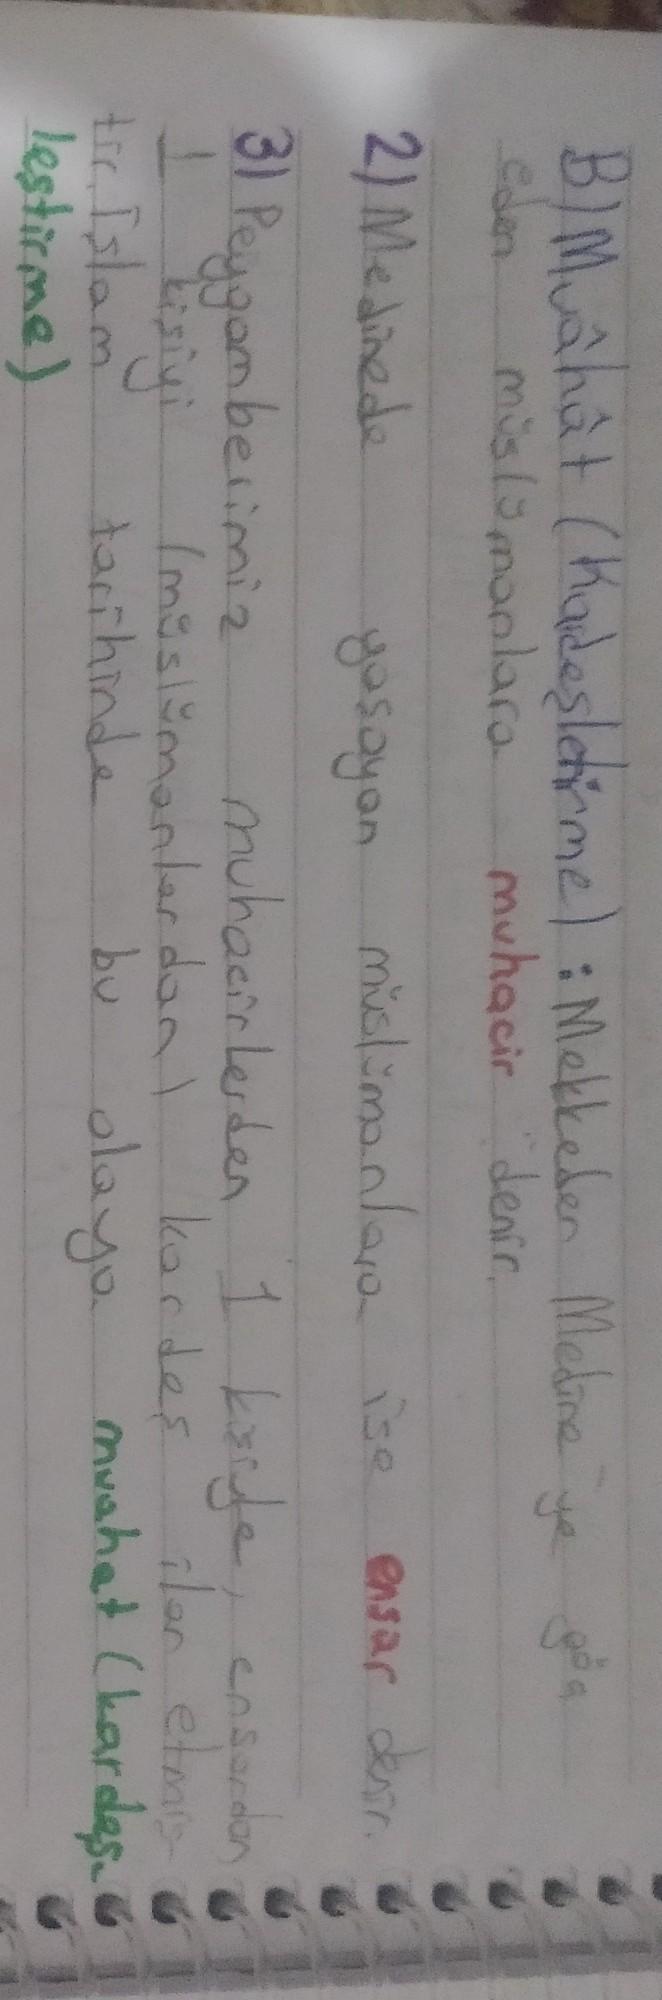 B) Muâhât (Kardeşletirme) : Mekkeden Medine'ye göç
eden müslümanlara muhacir denir.
2) Medinede yaşayan müslümanlara ise ensar denir.
3) Peygamberimiz muhacirlerden 1 kişiyle, ensardan
1 kişiyi (müslümanlardan) kardeş ilan etmiş-
tir. İslam tarihinde bu olaya muahat (kardeş-
leştirme)